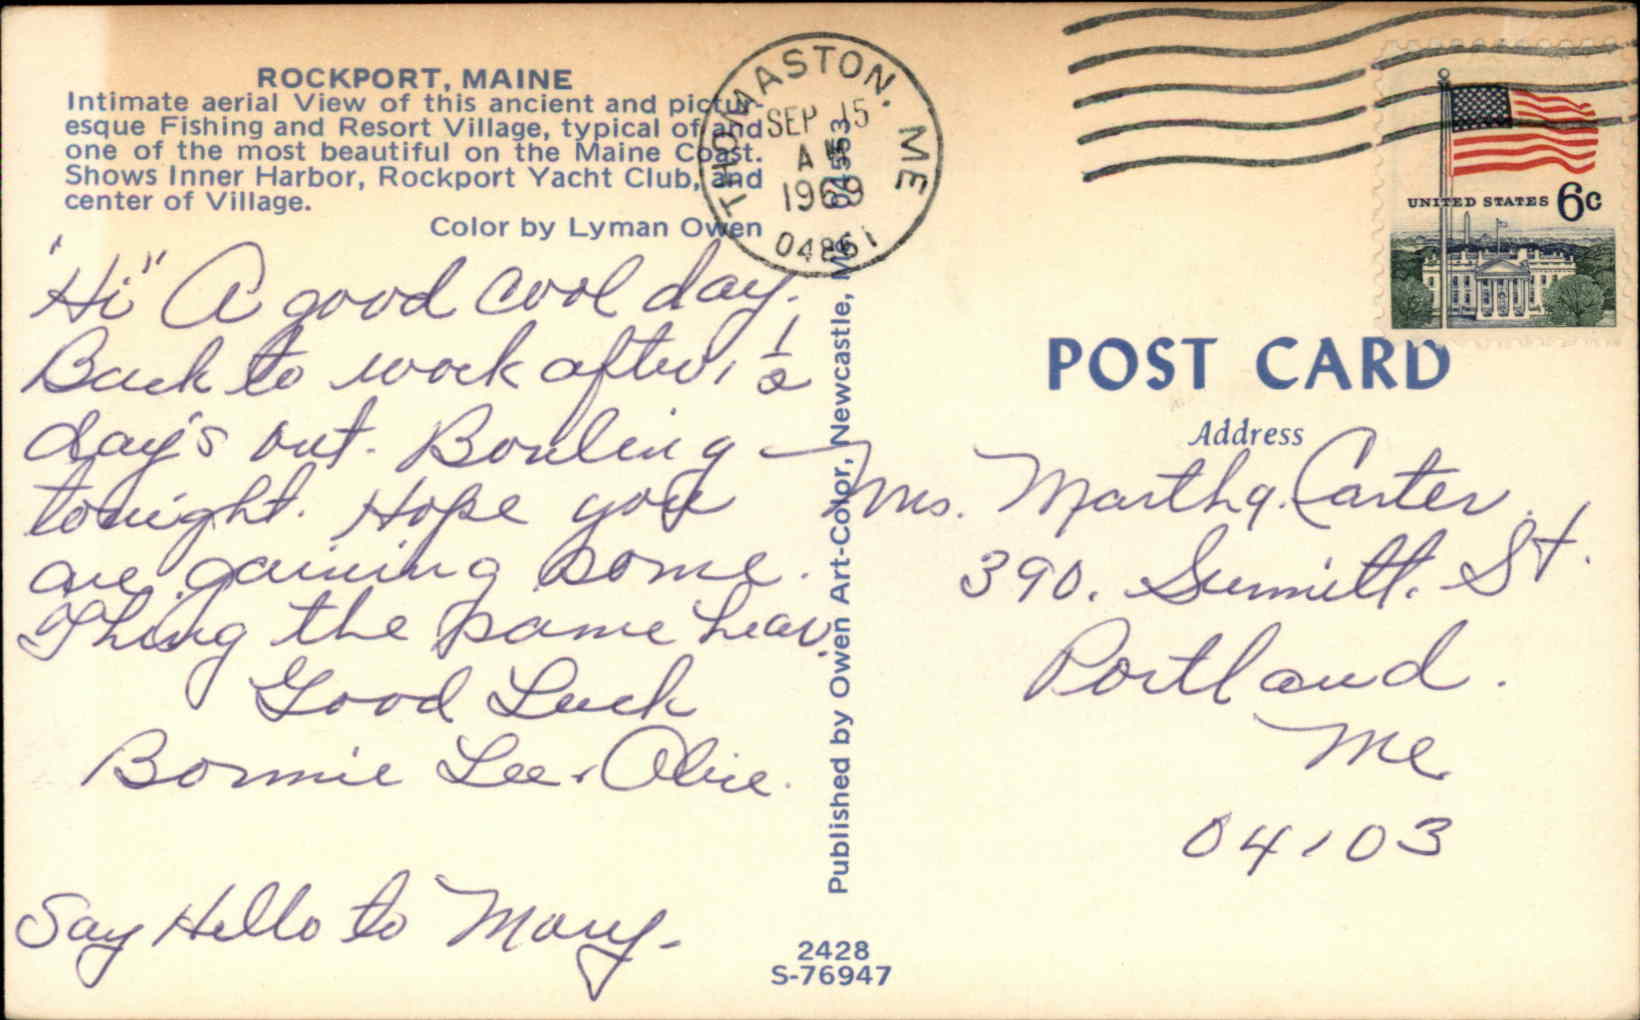 ROCKPORT, MAINE
Intimate aerial View of this ancient and pictur-
esque Fishing and Resort Village, typical of and
one of the most beautiful on the Maine Coast.
Shows Inner Harbor, Rockport Yacht Club, and
center of Village.
Color by Lyman Owen
"Hi" A good cool day.
Back to work after 1 1/2
day's out. Bowling
tonight. Hope you
are gaining some.
Thing the same hear.
Good Luck
Bonnie Lee. Alice.
Say Hello to Mary-
Published by Owen Art-Color, Newcastle, Me 04553
2428
S-76947
THOMASTON, ME
SEP 15
AM
1969
04861
UNITED STATES 6c
POST CARD
Address
Mrs. Martha. Carter.
390. Summitt. St.
Portland.
Me
04103